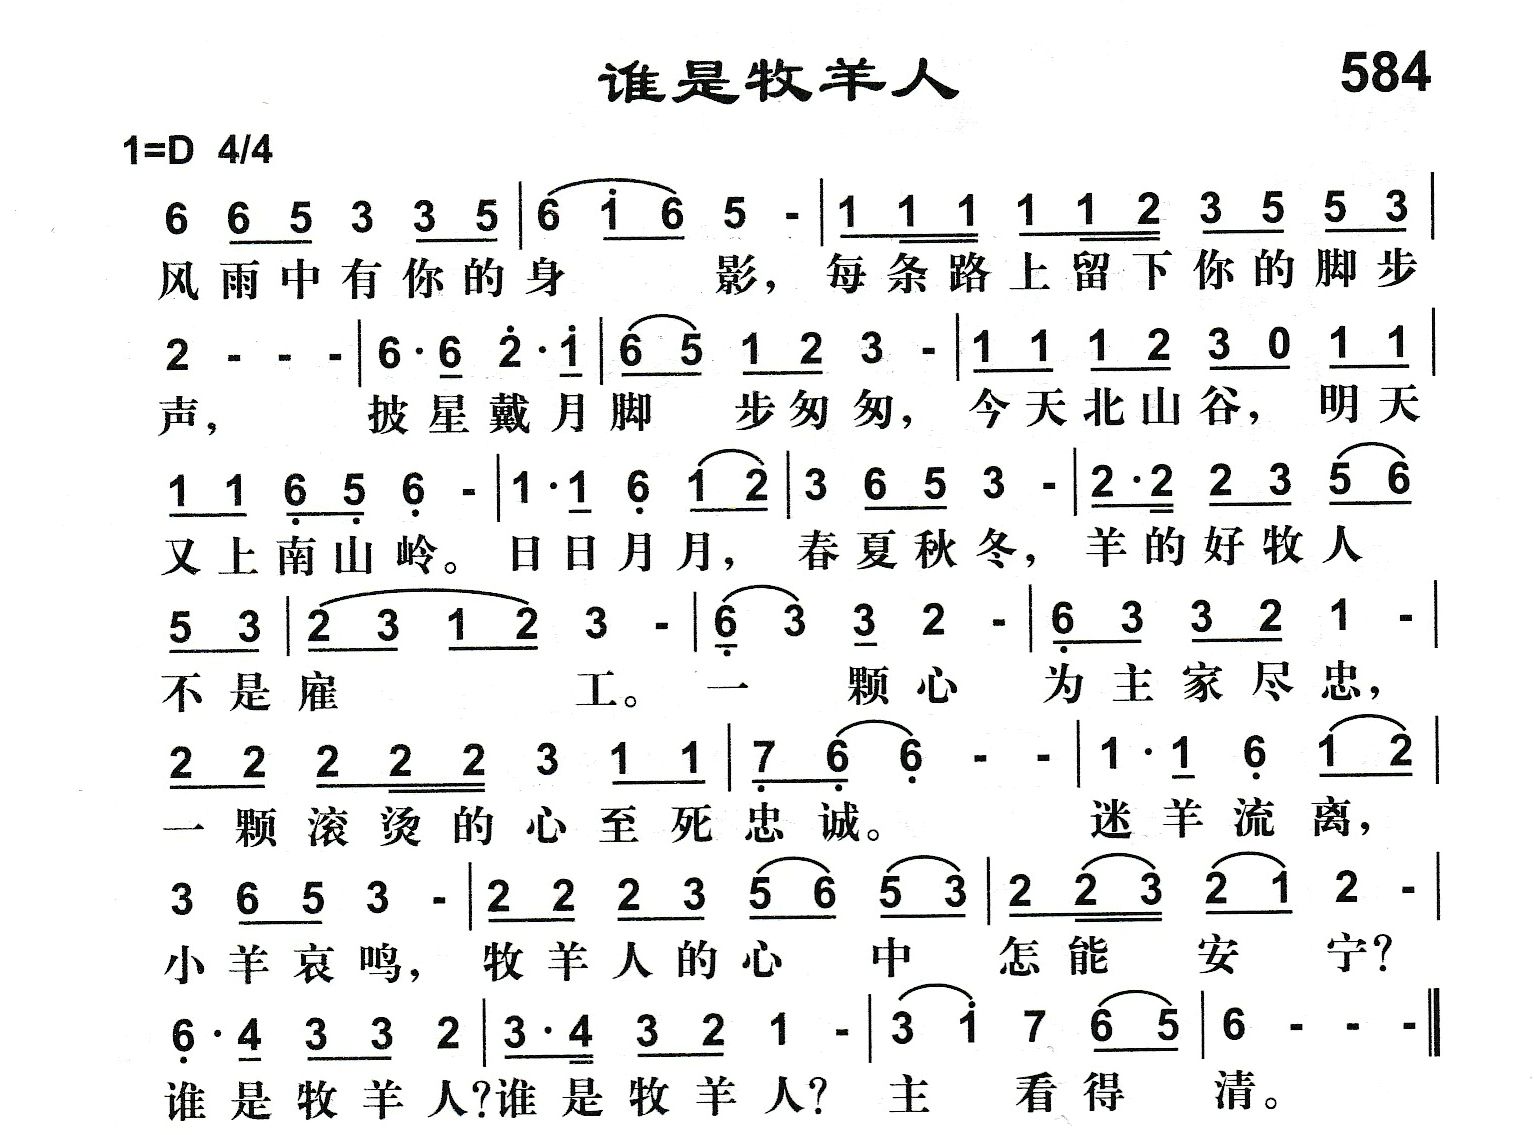 谁是牧羊人 584
1=D 4/4
6 6 5 3 3 5 | 6 1 6 5 - | 1 1 1 1 1 2 3 5 5 3 |
风雨中有你的身 影，每条路上留下你的脚步
2 - - - | 6·6 2·1 | 6 5 1 2 3 - | 1 1 1 2 3 0 1 1 |
声， 披星戴月脚 步匆匆，今天北山谷，明天
1 1 6 5 6 - | 1·1 6 1 2 | 3 6 5 3 - | 2·2 2 3 5 6
又上南山岭。日日月月，春夏秋冬，羊的好牧人
5 3 | 2 3 1 2 3 - | 6 3 3 2 - | 6 3 3 2 1 - |
不是雇 工。一 颗心 为主家尽忠，
2 2 2 2 2 3 1 1 | 7 6 6 - - | 1·1 6 1 2 |
一颗滚烫的心至死忠诚。 迷羊流离，
3 6 5 3 - | 2 2 2 3 5 6 5 3 | 2 2 3 2 1 2 - |
小羊哀鸣，牧羊人的心 中 怎能 安 宁？
6·4 3 3 2 | 3·4 3 2 1 - | 3 1 7 6 5 | 6 - - - ‖
谁是牧羊人？谁是牧羊人？主 看得 清。